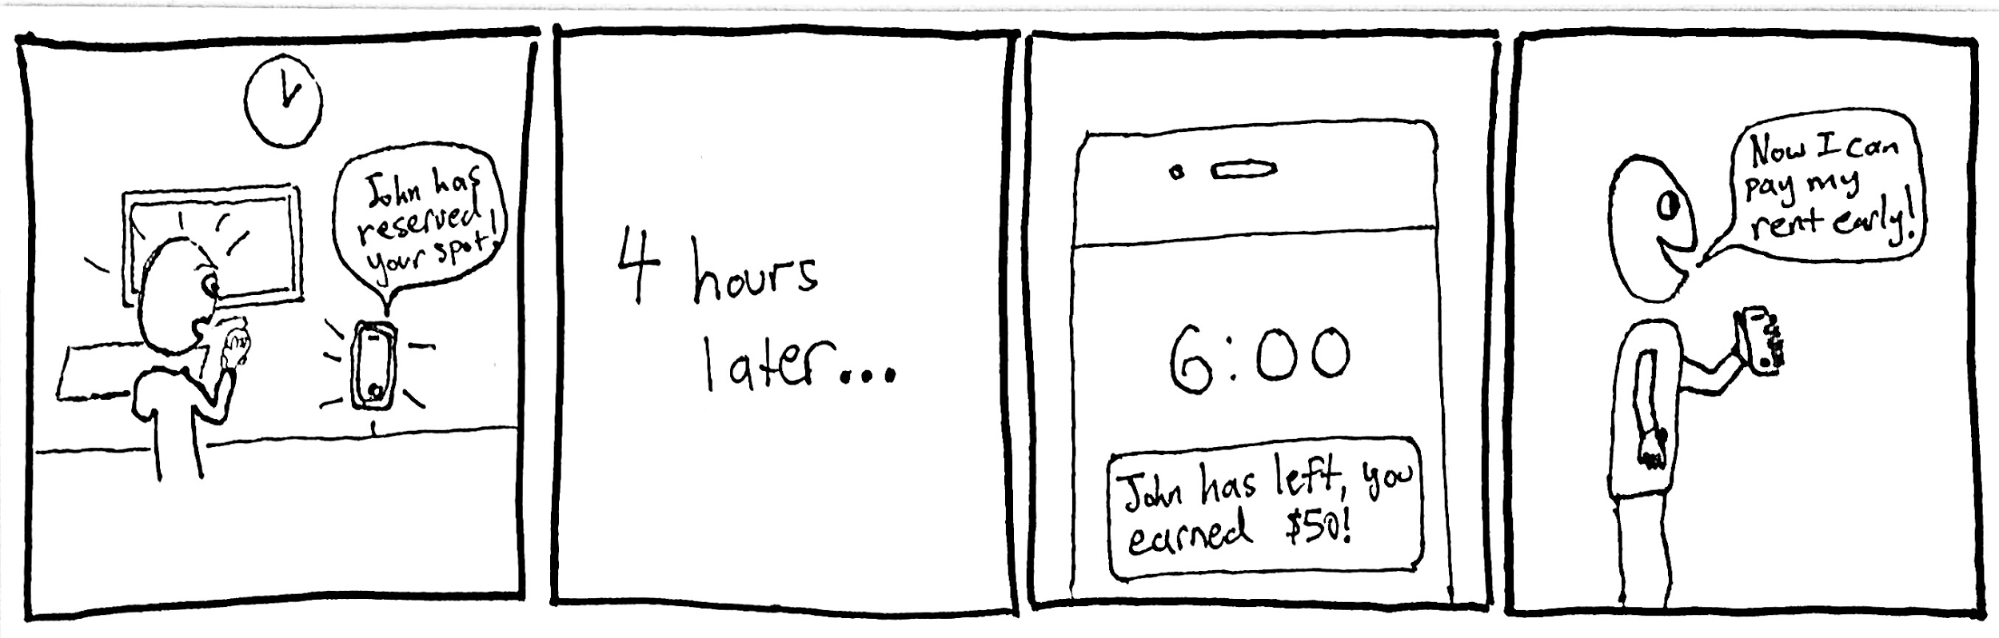 John has
reserved
your spot!
4 hours
later...
6:00
John has left, you
earned $50!
Now I can
pay my
rent early!